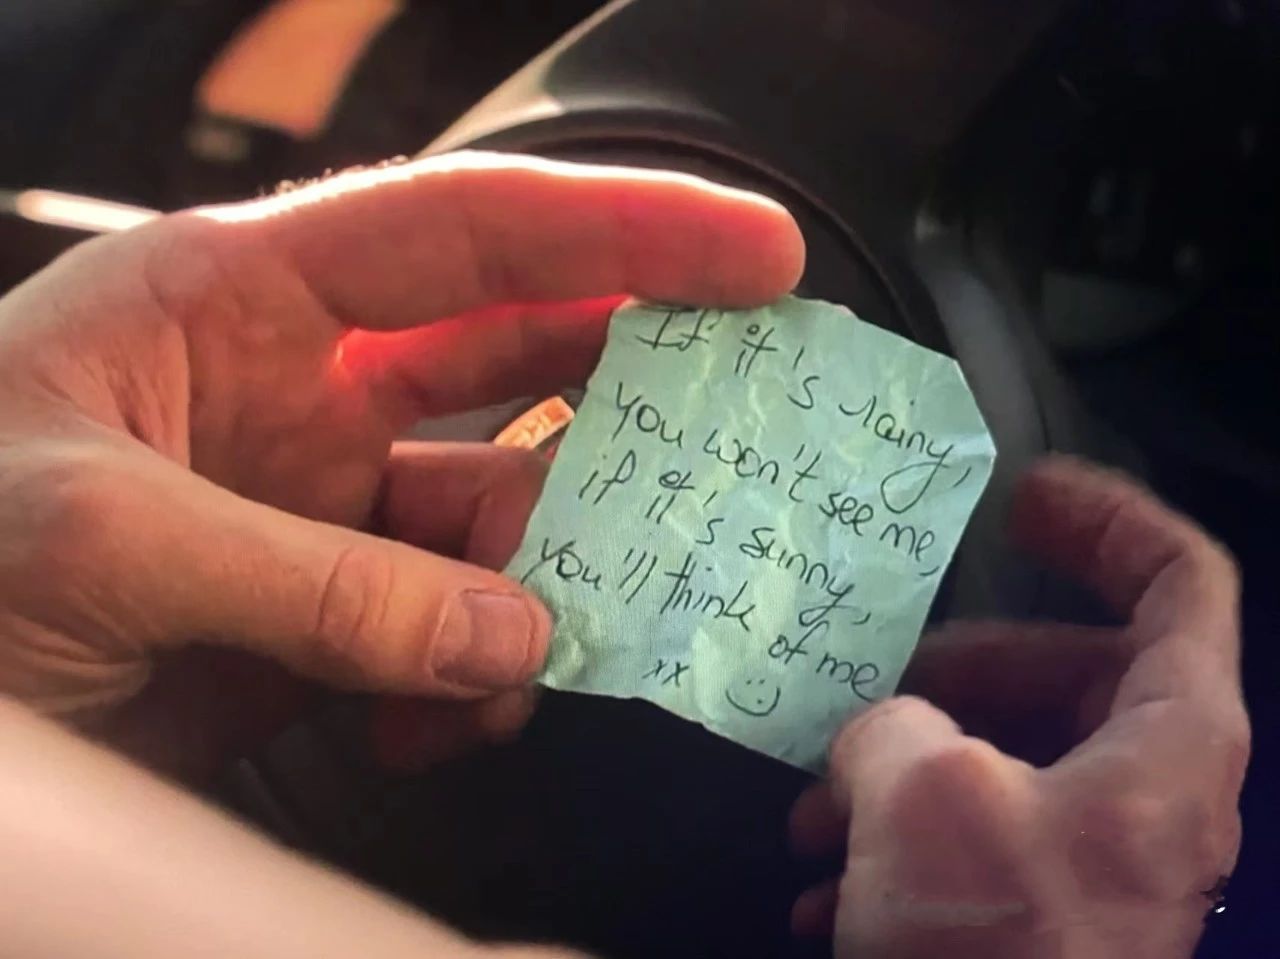 If it's rainy,
you won't see me,
if it's sunny,
you'll think of me
xx :)